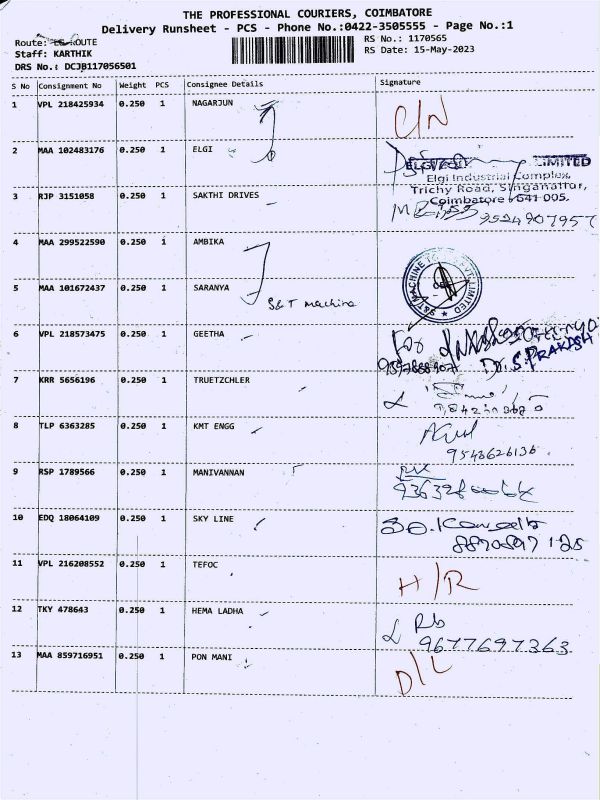 THE PROFESSIONAL COURIERS, COIMBATORE
Delivery Runsheet - PCS - Phone No.:0422-3505555 - Page No.:1
Route: LG ROUTE
RS No.: 1170565
Staff: KARTHIK
RS Date: 15-May-2023
DRS No.: DCJB117056501
S No Consignment No Weight PCS Consignee Details Signature
1 VPL 218425934 0.250 1 NAGARJUN C/N
2 MAA 102483176 0.250 1 ELGI
LIMITED
Elgi Industrial Complex,
Trichy Road, Singanallur,
Coimbatore - 641 005.
3 RJP 3151058 0.250 1 SAKTHI DRIVES 9524907957
4 MAA 299522590 0.250 1 AMBIKA
5 MAA 101672437 0.250 1 SARANYA
S&T machine
6 VPL 218573475 0.250 1 GEETHA For
Dr. S. PRAKASH
7 KRR 5656196 0.250 1 TRUETZCHLER
8 TLP 6363285 0.250 1 KMT ENGG
9548626136
9 RSP 1789566 0.250 1 MANIVANNAN
10 EDQ 18064109 0.250 1 SKY LINE
11 VPL 216208552 0.250 1 TEFOC H/R
12 TKY 478643 0.250 1 HEMA LADHA Rb
9677697363
13 MAA 859716951 0.250 1 PON MANI D/L